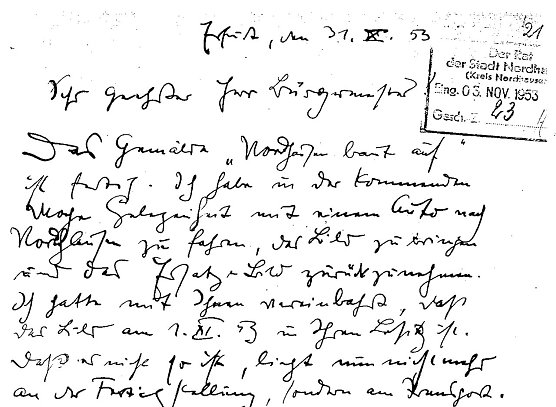 Erfurt, den 31. X. 53
21
Der Rat
der Stadt Nordha
(Kreis Nordhause
Eing. 03. NOV. 1953
Gesch. Z. 23 4
Sehr geehrter Herr Bürgermeister!
Das Gemälde „Nordhausen baut auf"
ist fertig. Ich habe in der kommenden
Woche Gelegenheit mit einem Auto nach
Nordhausen zu fahren, das Bild zu bringen
und das Ersatz-Bild zurückzunehmen.
Ich hatte mit Ihnen vereinbahrt, daß
das Bild am 1. XI. 53 in Ihrem Besitz ist.
Daß es nicht so ist, liegt nun nicht mehr
an der Fertigstellung, sondern am Transport.